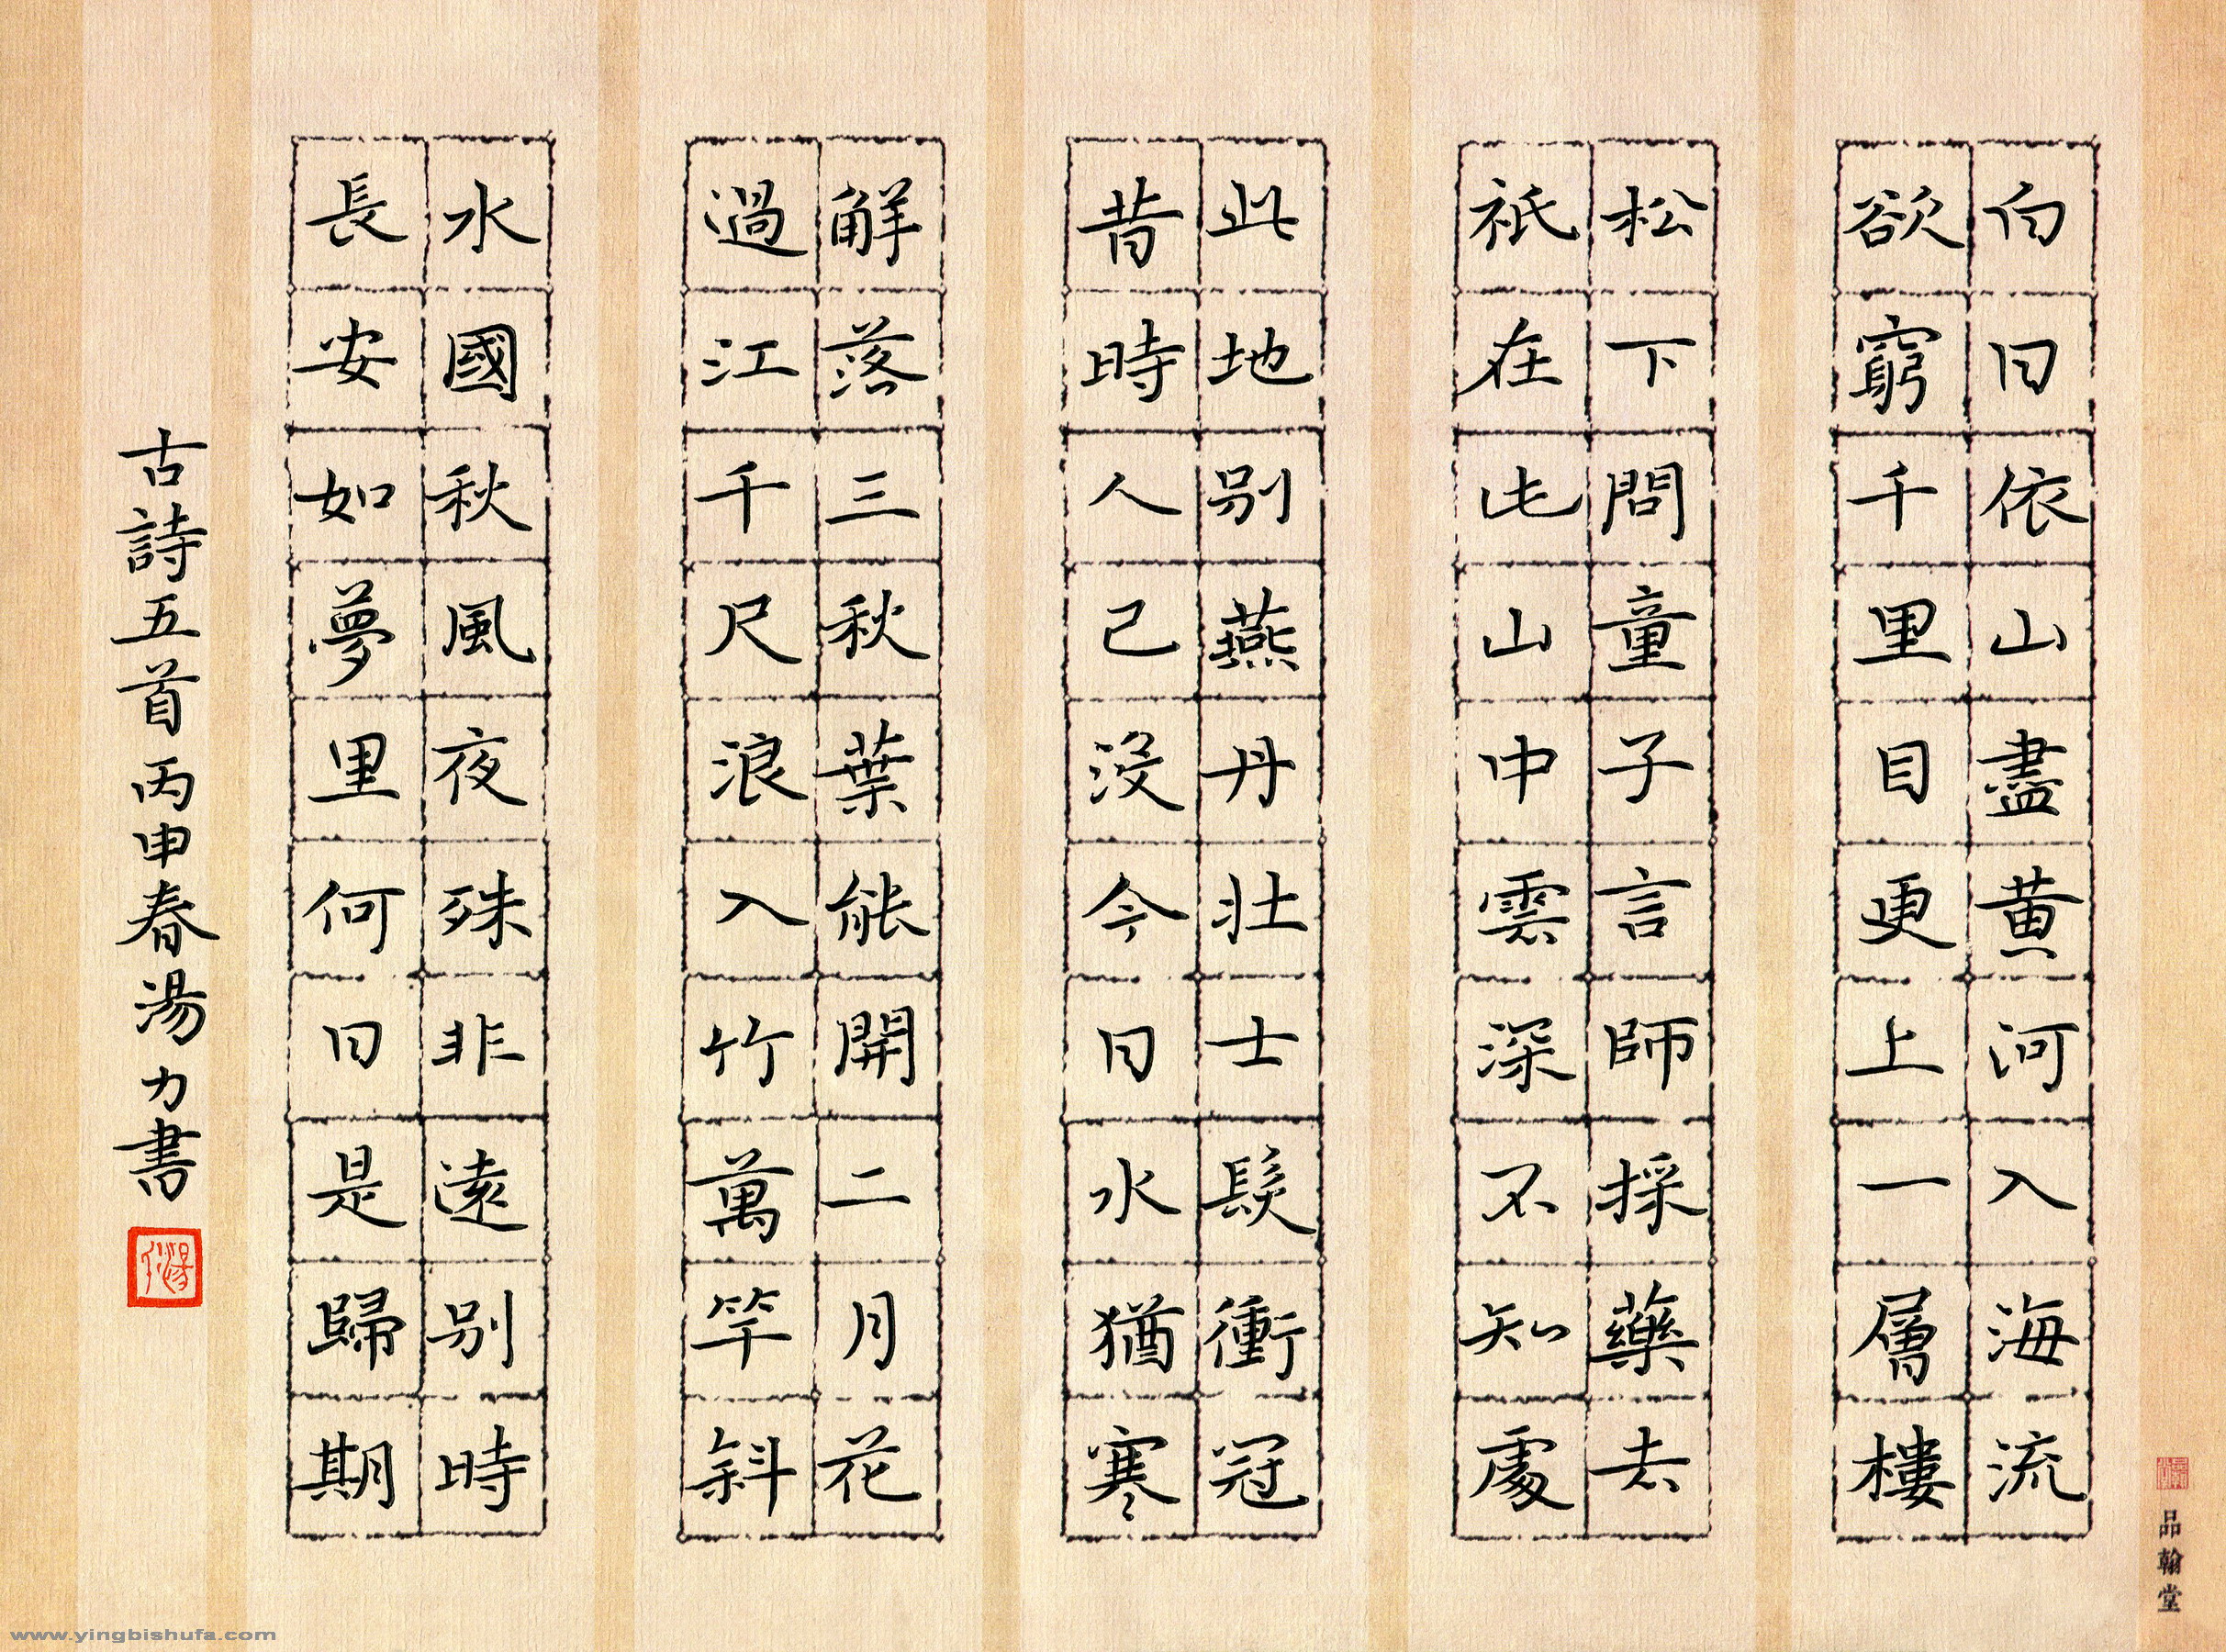 白日依山盡黄河入海流
欲窮千里目更上一層樓
松下問童子言師採藥去
祇在此山中雲深不知處
此地别燕丹壮士髮衝冠
昔時人已没今日水猶寒
解落三秋葉能開二月花
過江千尺浪入竹萬竿斜
水國秋風夜殊非遠别時
長安如夢里何日是歸期
古詩五首丙申春湯力書
品翰堂
www.yingbishufa.com